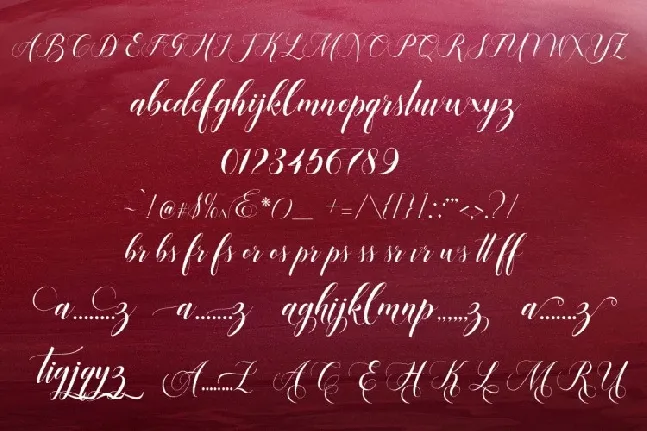 ABCDEFGHIJKLMNOPQRSTUVWXYZ
abcdefghijklmnopqrstuvwxyz
0123456789
~`!@#$%^&*()_ +=/\{[}]:;"'<,>.?/
br bs fr fs or os pr ps ss sr vr ws tt ff
a........z a.......z aghijklmnp,,,,,,z a.......z
tigjgyz A........Z A C E H K L M R U